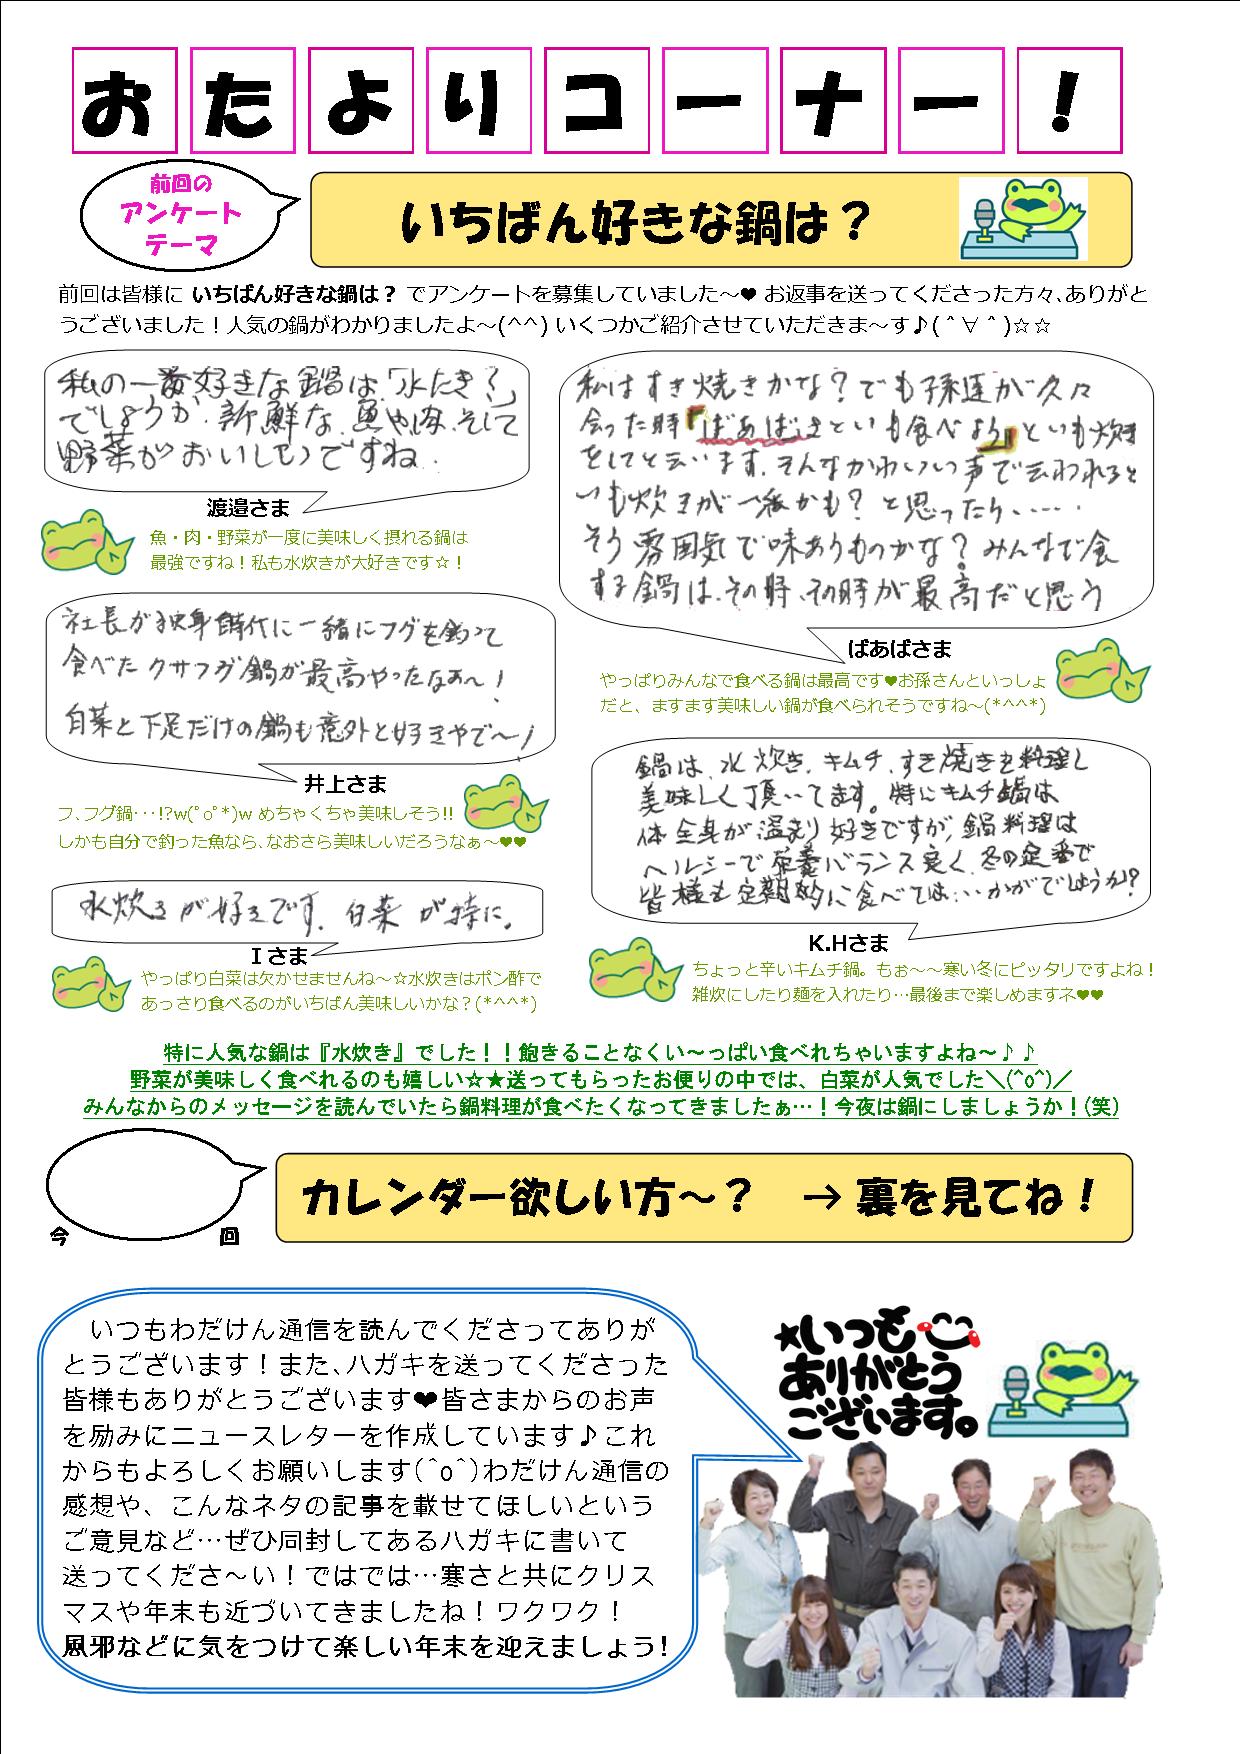 おたよりコーナー！
前回の
アンケート
テーマ
いちばん好きな鍋は？
前回は皆様に いちばん好きな鍋は？ でアンケートを募集していました～♥ お返事を送ってくださった方々､ありがと
うございました！人気の鍋がわかりましたよ～(^^) いくつかご紹介させていただきま～す♪( ˆ ∀ ˆ )☆☆
私の一番好きな鍋は「水たき」
でしょうか．新鮮な．魚や肉．そして
野菜がおいしいですね．
渡邉さま
魚・肉・野菜が一度に美味しく摂れる鍋は
最強ですね！私も水炊きが大好きです☆！
社長が独身時代に一緒にフグを釣って
食べたクサフグ鍋が最高やったなぁ～！
白菜と下足だけの鍋も意外と好きやで～！
井上さま
フ､フグ鍋･･･!?w(ﾟoﾟ*)w めちゃくちゃ美味しそう!!
しかも自分で釣った魚なら､なおさら美味しいだろうなぁ～♥♥
水炊きが好きです．白菜が特に。
Ｉさま
やっぱり白菜は欠かせませんね～☆水炊きはポン酢で
あっさり食べるのがいちばん美味しいかな？(*^^*)
私はすき焼きかな？でも孫達が久々
会った時『ばあばぁといも食べよう』といも炊き
をしてと云います．そんなかわいい声で云われると
いも炊きが一番かも？と思ったり……．
そう雰囲気で味あうものかな？みんなで食
する鍋は．その時．その時が最高だと思う
ばあばさま
やっぱりみんなで食べる鍋は最高です♥お孫さんといっしょ
だと、ますます美味しい鍋が食べられそうですね～(*^^*)
鍋は､水炊き､キムチ､すき焼きを料理し
美味しく頂いてます。特にキムチ鍋は
体全身が温まり好きですが､鍋料理は
ヘルシーで栄養バランス良く､冬の定番で
皆様も定期的に食べては…いかがでしょうか？
K.Hさま
ちょっと辛いキムチ鍋。もぉ～～寒い冬にピッタリですよね！
雑炊にしたり麺を入れたり…最後まで楽しめますネ♥♥
特に人気な鍋は『水炊き』でした！！飽きることなくい～っぱい食べれちゃいますよね～♪♪
野菜が美味しく食べれるのも嬉しい☆★送ってもらったお便りの中では、白菜が人気でした＼(^o^)／
みんなからのメッセージを読んでいたら鍋料理が食べたくなってきましたぁ…！今夜は鍋にしましょうか！(笑)
今 回
カレンダー欲しい方～？ → 裏を見てね！
いつもわだけん通信を読んでくださってありが
とうございます！また､ハガキを送ってくださった
皆様もありがとうございます♥皆さまからのお声
を励みにニュースレターを作成しています♪これ
からもよろしくお願いします(^o^)わだけん通信の
感想や、こんなネタの記事を載せてほしいという
ご意見など…ぜひ同封してあるハガキに書いて
送ってくださ～い！ではでは…寒さと共にクリス
マスや年末も近づいてきましたね！ワクワク！
風邪などに気をつけて楽しい年末を迎えましょう!
★いつも
ありがとう
ございます。